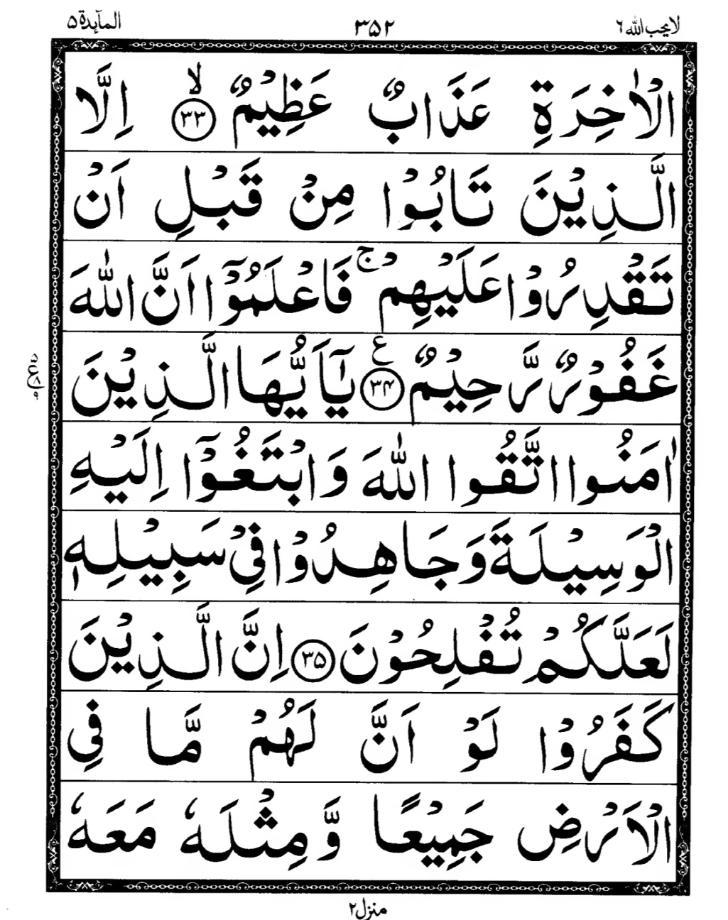 لا يحب الله ٦ ٣٥٢ المآىدة ٥
الْاٰخِرَةِ عَذَابٌ عَظِيْمٌ ۙ﴿۳۳﴾ اِلَّا
الَّذِيْنَ تَابُوْا مِنْ قَبْلِ اَنْ
تَقْدِرُوْا عَلَيْهِمْ ۚ فَاعْلَمُوْۤا اَنَّ اللّٰهَ
غَفُوْرٌ رَّحِيْمٌ ﴿۳۴﴾ ع يٰۤاَيُّهَا الَّذِيْنَ
اٰمَنُوا اتَّقُوا اللّٰهَ وَابْتَغُوْۤا اِلَيْهِ
الْوَسِيْلَةَ وَجَاهِدُوْا فِيْ سَبِيْلِهٖ
لَعَلَّكُمْ تُفْلِحُوْنَ ﴿۳۵﴾ اِنَّ الَّذِيْنَ
كَفَرُوْا لَوْ اَنَّ لَهُمْ مَّا فِي
الْاَرْضِ جَمِيْعًا وَّمِثْلَهٗ مَعَهٗ
منزل ٢